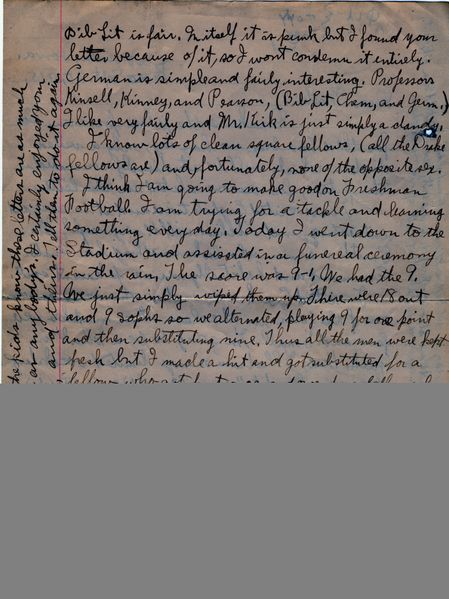 Bib Lit is fair. In itself it is punk but I found your
letter because of it, so I wont condemn it entirely.
German is simple and fairly interesting. Professors
Kinsell, Kinney, and Pearson, (Bib Lit, Chem, and Germ.)
I like very fairly and Mr. Kirk is just simply a dandy.
I know lots of clean square fellows, (all the Drake
fellows are) and, fortunately, none of the opposite sex.
I think I am going to make good on Freshman
Football. I am trying for a tackle and learning
something every day. Today I went down to the
Stadium and assissted in a funereal ceremony
in the rain, The score was 9-1, We had the 9.
We just simply wiped them up. There were 18 out
and 9 sophs so we alternated, playing 9 for one point
and then substituting nine. Thus all the men were kept
fresh but I made a hit and got substituted for a
fellow who got
the kids know these letters are as much
as any body's. I certainly enjoyed yours
and theirs. Tell them to do it again.